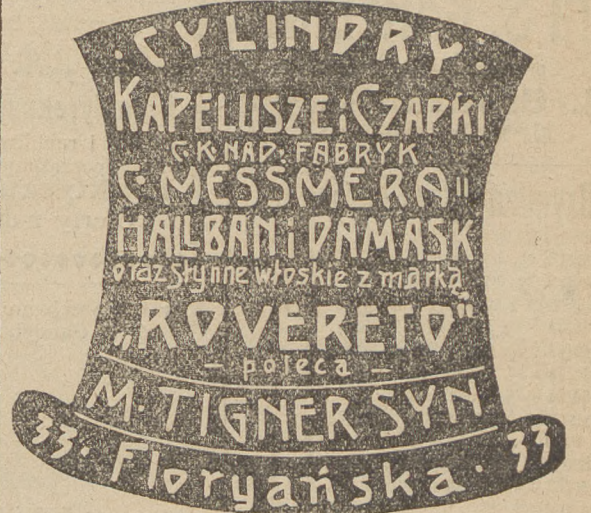 · CYLINDRY ·
KAPELUSZE i CZAPKI
C. K. NAD. FABRYK
C. MESSMERA
HALLBAN i DAMASK
oraz słynne włoskie z marką
„ROVERETO"
— poleca —
M. TIGNER SYN
33 · Floryańska · 33